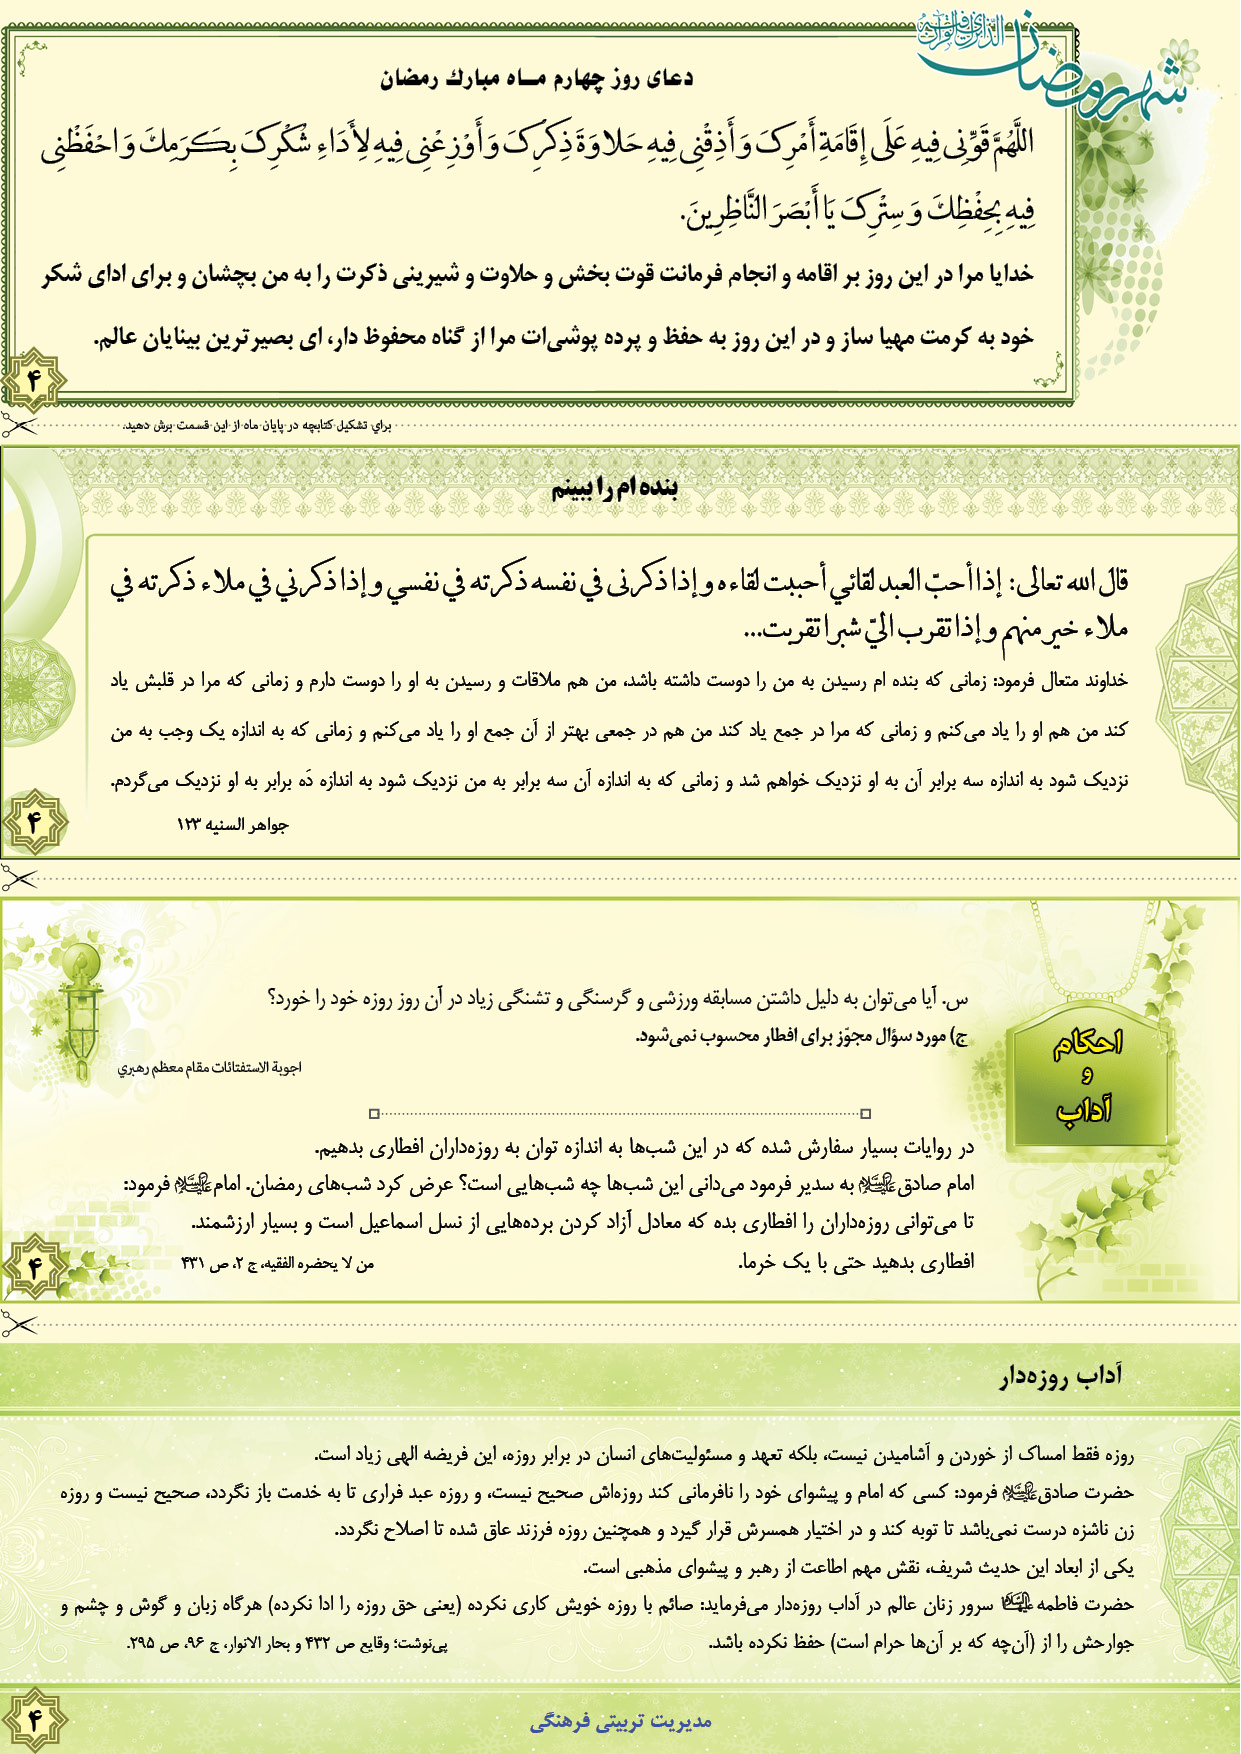 شهر رمضان الذی انزل فیه القرآن
دعای روز چهارم مــاه مبارك رمضان
اللَّهُمَّ قَوِّنِي فِيهِ عَلَى إِقَامَةِ أَمْرِكَ وَ أَذِقْنِي فِيهِ حَلَاوَةَ ذِكْرِكَ وَ أَوْزِعْنِي فِيهِ لِأَدَاءِ شُكْرِكَ بِكَرَمِكَ وَ احْفَظْنِي
فِيهِ بِحِفْظِكَ وَ سِتْرِكَ يَا أَبْصَرَ النَّاظِرِينَ.
خدایا مرا در این روز بر اقامه و انجام فرمانت قوت بخش و حلاوت و شیرینی ذکرت را به من بچشان و برای ادای شکر
خود به کرمت مهیا ساز و در این روز به حفظ و پرده پوشی‌ات مرا از گناه محفوظ دار، ای بصیرترین بینایان عالم.
۴
براي تشکیل کتابچه در پایان ماه از این قسمت برش دهید.
بنده ام را ببینم
قال الله تعالى: إذا أحبّ العبد لقائي أحببت لقاءه و إذا ذكرنى في نفسه ذكرته في نفسي و إذا ذكرني في ملاء ذكرته في
ملاء خير منهم و إذا تقرب اليّ شبرا تقربت...
خداوند متعال فرمود: زمانی که بنده ام رسیدن به من را دوست داشته باشد، من هم ملاقات و رسیدن به او را دوست دارم و زمانی که مرا در قلبش یاد
کند من هم او را یاد می‌کنم و زمانی که مرا در جمع یاد کند من هم در جمعی بهتر از آن جمع او را یاد می‌کنم و زمانی که به اندازه یک وجب به من
نزدیک شود به اندازه سه برابر آن به او نزدیک خواهم شد و زمانی که به اندازه آن سه برابر به من نزدیک شود به اندازه دَه برابر به او نزدیک می‌گردم.
جواهر السنیه ۱۲۳
۴
احکام
و
آداب
س. آیا می‌توان به دلیل داشتن مسابقه ورزشی و گرسنگی و تشنگی زیاد در آن روز روزه خود را خورد؟
ج) مورد سؤال مجوّز برای افطار محسوب نمی‌شود.
اجوبة الاستفتائات مقام معظم رهبري
در روایات بسیار سفارش شده که در این شب‌ها به اندازه توان به روزه‌داران افطاری بدهیم.
امام صادق علیه‌السلام به سدیر فرمود می‌دانی این شب‌ها چه شب‌هایی است؟ عرض کرد شب‌های رمضان. امام علیه‌السلام فرمود:
تا می‌توانی روزه‌داران را افطاری بده که معادل آزاد کردن برده‌هایی از نسل اسماعیل است و بسیار ارزشمند.
افطاری بدهید حتی با یک خرما.
من لا یحضره الفقیه، ج ۲، ص ۴۳۱
۴
آداب روزه‌دار
روزه فقط امساک از خوردن و آشامیدن نیست، بلکه تعهد و مسئولیت‌های انسان در برابر روزه، این فریضه الهی زیاد است.
حضرت صادق علیه‌السلام فرمود: کسی که امام و پیشوای خود را نافرمانی کند روزه‌اش صحیح نیست، و روزه عبد فراری تا به خدمت باز نگردد، صحیح نیست و روزه
زن ناشزه درست نمی‌باشد تا توبه کند و در اختیار همسرش قرار گیرد و همچنین روزه فرزند عاق شده تا اصلاح نگردد.
یکی از ابعاد این حدیث شریف، نقش مهم اطاعت از رهبر و پیشوای مذهبی است.
حضرت فاطمه علیهاالسلام سرور زنان عالم در آداب روزه‌دار می‌فرماید: صائم با روزه خویش کاری نکرده (یعنی حق روزه را ادا نکرده) هرگاه زبان و گوش و چشم و
جوارحش را از (آن‌چه که بر آن‌ها حرام است) حفظ نکرده باشد.
پی‌نوشت؛ وقایع ص ۴۳۲ و بحار الانوار، ج ۹۶، ص ۲۹۵.
۴
مدیریت تربیتی فرهنگی